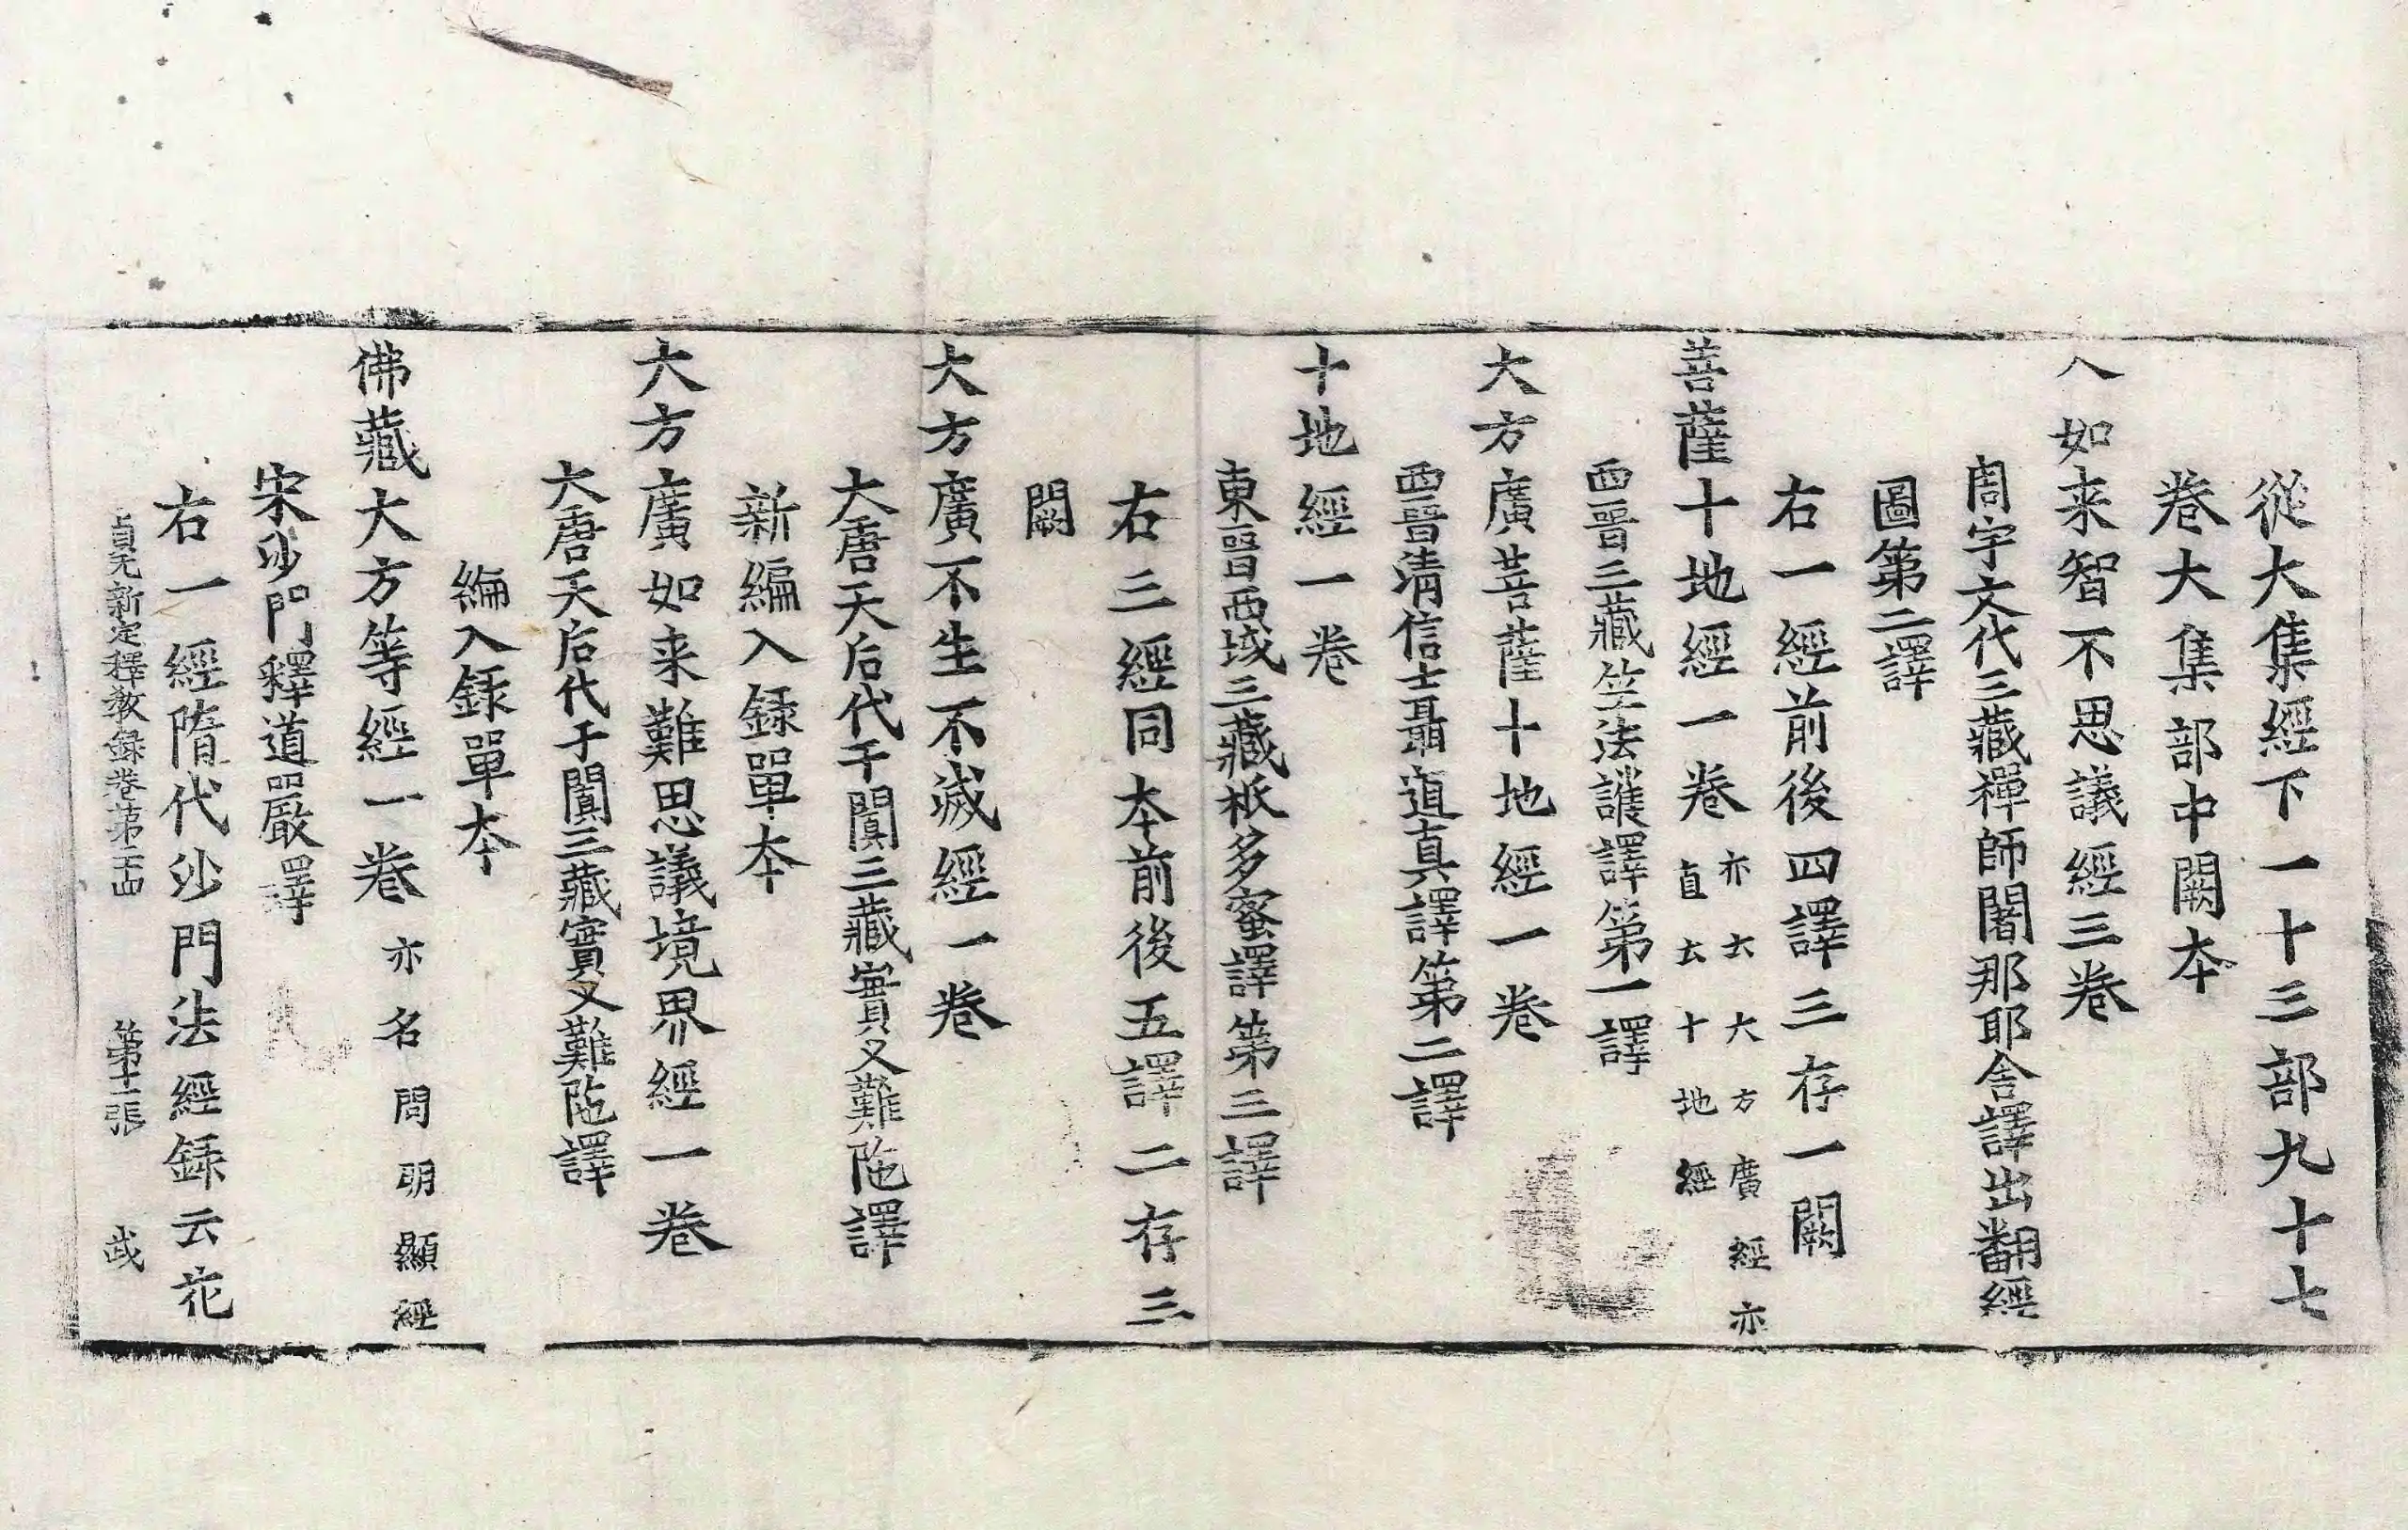 從大集經下一十三部九十七
卷大集部中闕本
入如来智不思議經三卷
周宇文代三藏禪師闍那耶舍譯出翻經
圖第二譯
右一經前後四譯三存一闕
菩薩十地經一卷
亦云大方廣經亦
直云十地經
西晉三藏竺法護譯第一譯
大方廣菩薩十地經一卷
西晉清信士聶道真譯第二譯
十地經一卷
東晉西域三藏祇多蜜譯第三譯
右三經同本前後五譯二存三
闕
大方廣不生不滅經一卷
大唐天后代于闐三藏實叉難陁譯
新編入録單本
大方廣如来難思議境界經一卷
大唐天后代于闐三藏實叉難陁譯
編入録單本
佛藏大方等經一卷亦名問明顯經
宋沙門釋道嚴譯
右一經隋代沙門法經録云花
貞元新定釋教録卷第二十四 第十二張 㦯